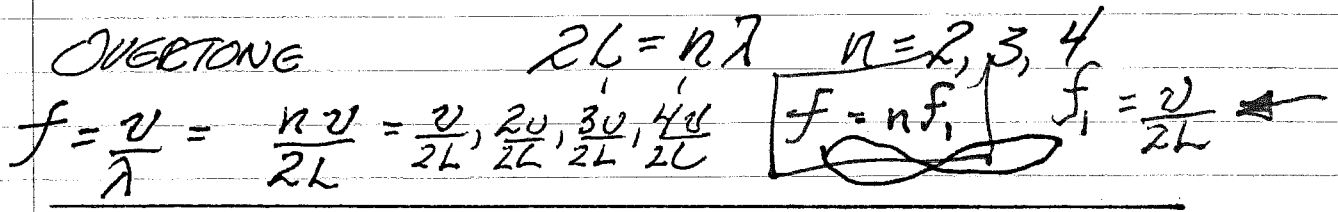 OVERTONE 2L = nλ n = 2, 3, 4
f = v/λ = nv/2L = v/2L, 2v/2L, 3v/2L, 4v/2L f = nf₁ f₁ = v/2L